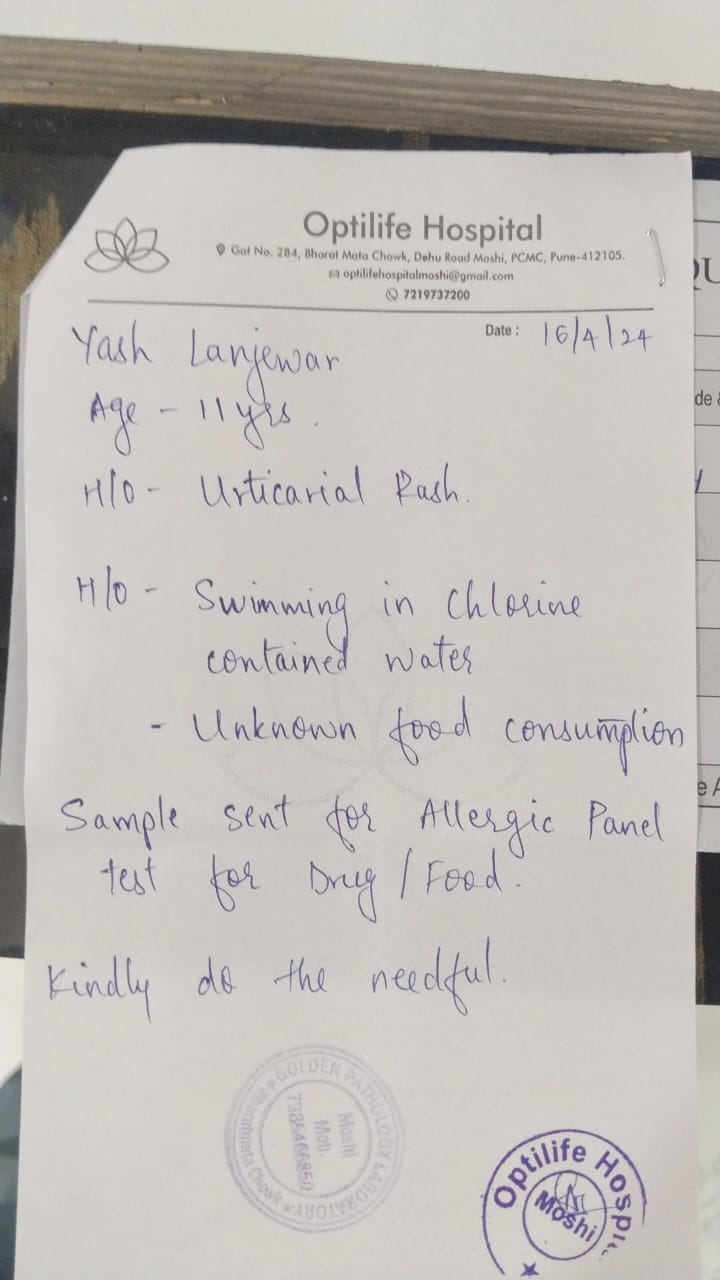 Optilife Hospital
Gat No. 284, Bharat Mata Chowk, Dehu Road Moshi, PCMC, Pune-412105.
optilifehospitalmoshi@gmail.com
7219737200
Date : 16/4/24
Yash Lanjewar
Age - 11 yrs.
H/O - Urticarial Rash.
H/O - Swimming in Chlorine
contained water
- Unknown food consumption
Sample sent for Allergic Panel
test for Drug / Food.
Kindly do the needful.
GOLDEN PATHOLOGY LABORATORY
Bharatmata Chowk
Moshi
Mob.
Optilife Hospi
Moshi
QU
de &
e A